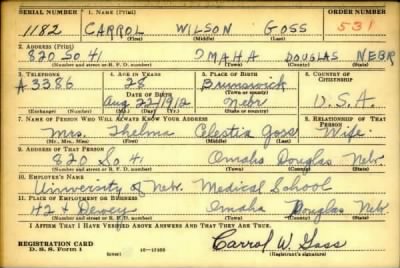 SERIAL NUMBER 1. NAME (Print) ORDER NUMBER
1182 CARROL WILSON GOSS 531
(First) (Middle) (Last)
2. ADDRESS (Print)
820 SO 41 OMAHA DOUGLAS NEBR
(Number and street or R. F. D. number) (Town) (County) (State)
3. TELEPHONE 4. AGE IN YEARS 5. PLACE OF BIRTH 6. COUNTRY OF CITIZENSHIP
A 3386 28 Brunswick
DATE OF BIRTH (Town or county)
Aug 22 1912 Nebr U.S.A.
(Exchange) (Number) (Mo.) (Day) (Yr.) (State or country)
7. NAME OF PERSON WHO WILL ALWAYS KNOW YOUR ADDRESS 8. RELATIONSHIP OF THAT PERSON
Mrs. Thelma Celestia Goss Wife
(Mr., Mrs., Miss) (First) (Middle) (Last)
9. ADDRESS OF THAT PERSON
820 So 41 Omaha Douglas Nebr.
(Number and street or R. F. D. number) (Town) (County) (State)
10. EMPLOYER'S NAME
University of Nebr. Medical School
11. PLACE OF EMPLOYMENT OR BUSINESS
42 & Dewey Omaha Douglas Nebr
(Number and street or R. F. D. number) (Town) (County) (State)
I AFFIRM THAT I HAVE VERIFIED ABOVE ANSWERS AND THAT THEY ARE TRUE.
REGISTRATION CARD
D. S. S. Form 1 (over) Carrol W. Goss
(Registrant's signature)